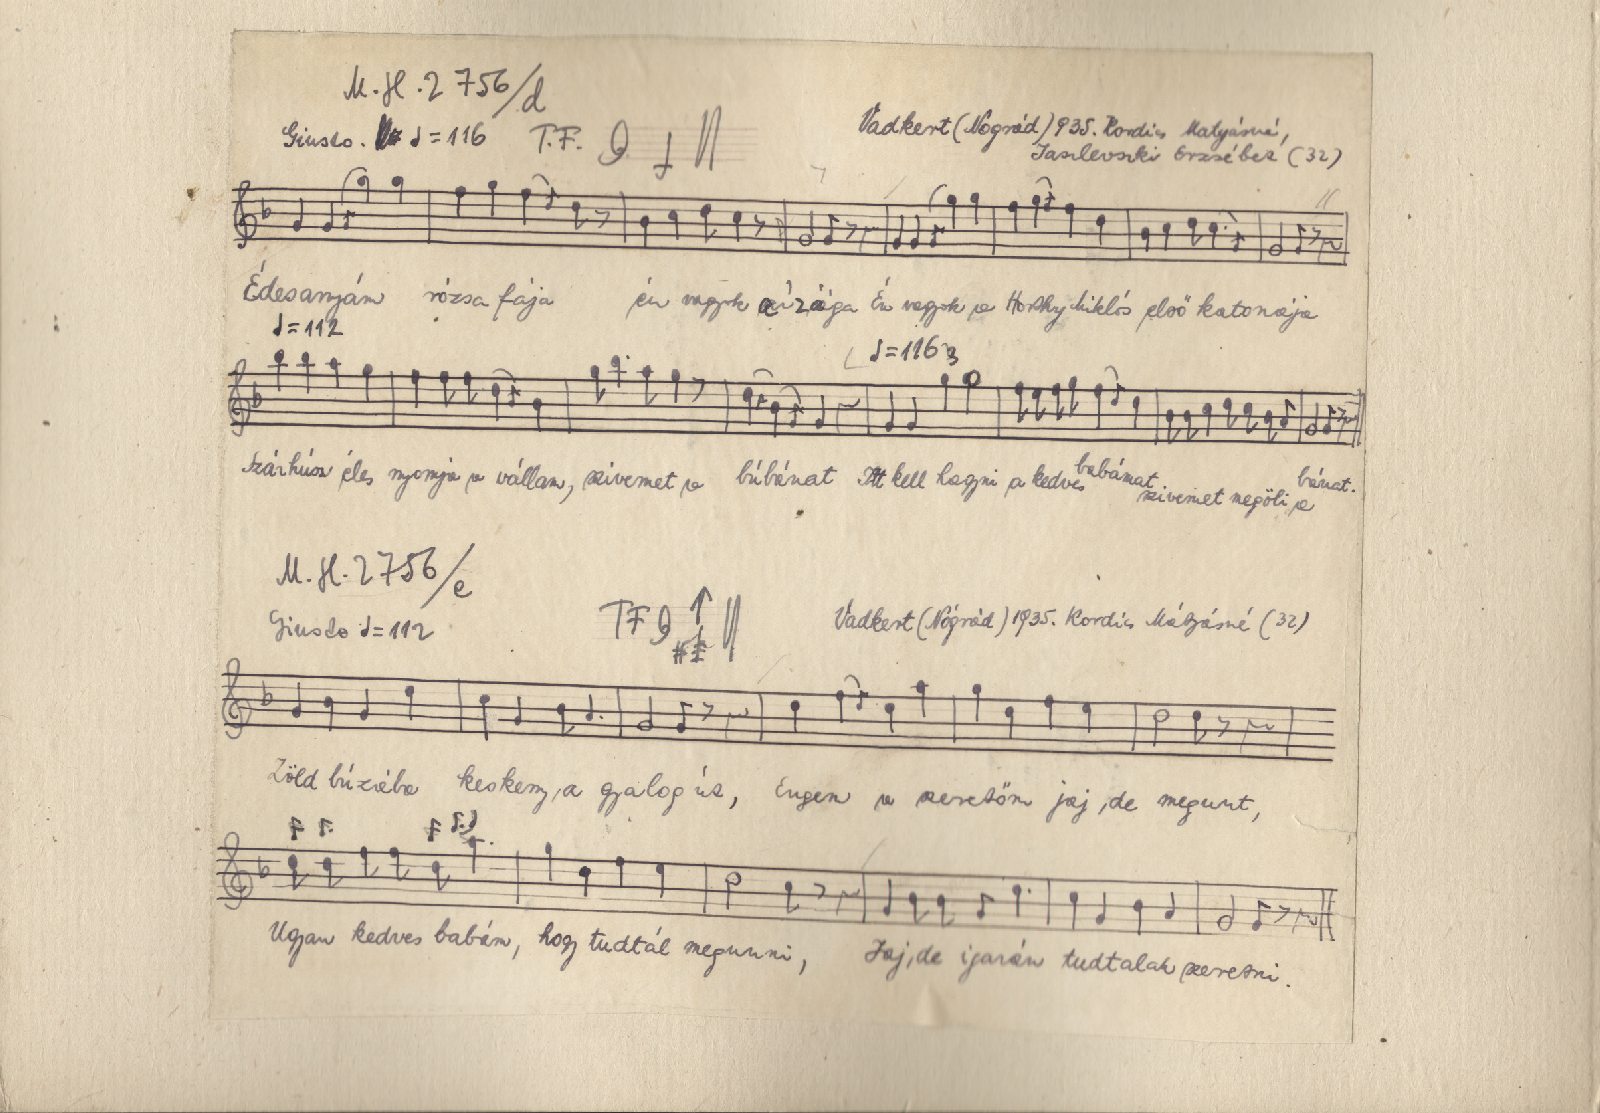 M. H. 2756/d
Giusto. ♩=116 T.F.
Vadkert (Nógrád) 935. Kordics Mátyásné,
Jasilevszki Erzsébet (32)
Édesanyám rózsa fája én vagyok a virága Én vagyok a Horthy Miklós első katonája
♩=112
♩=116
Szárhúsz éles nyomja a vállam, szivemet a búbánat Itt kell hagyni a kedves babámat szivemet megöli a bánat.
M. H. 2756/e
Giusto ♩=112 TF
Vadkert (Nógrád) 1935. Kordics Mátyásné (32)
Zöld búzába keskeny, a gyalog út, Engem a szeretőm jaj, de megunt,
Ugyan kedves babám, hogy tudtál megunni, Jaj, de igazán tudtalak szeretni.